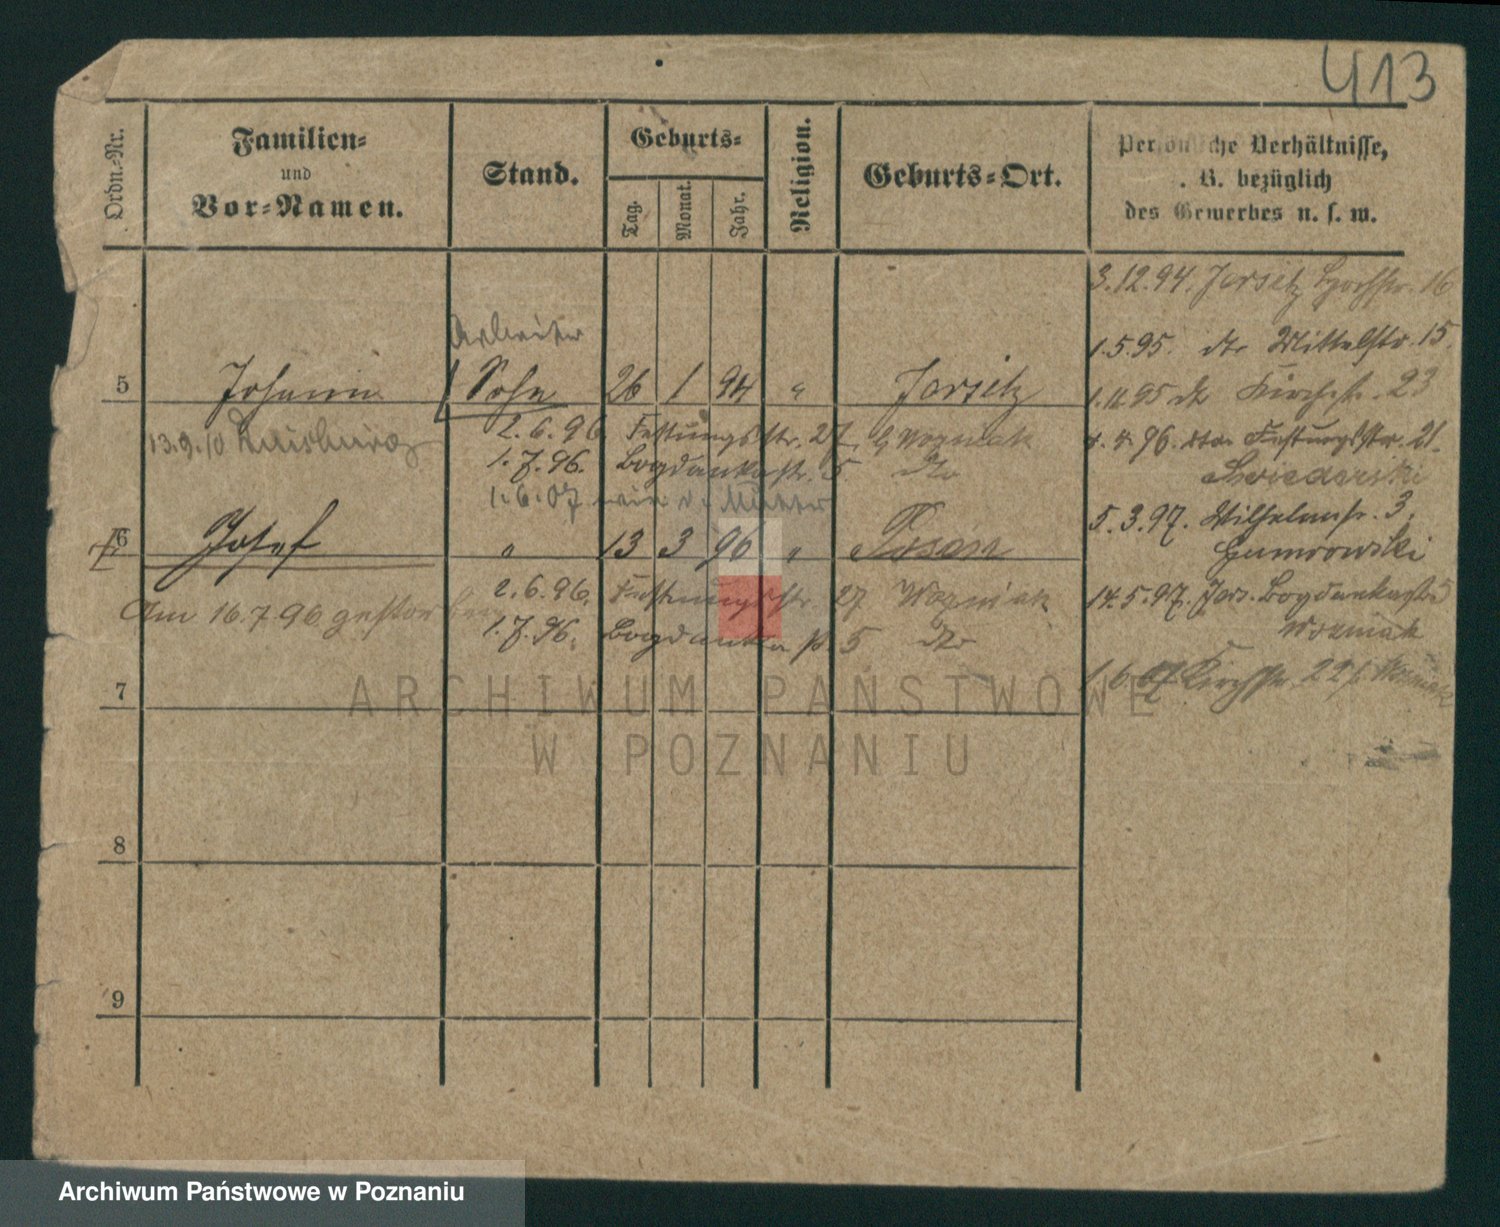 413
Ordn.-Nr.
Familien-
und
Vor-Namen.
Stand.
Geburts-
Tag.
Monat.
Jahr.
Religion.
Geburts-Ort.
Persönliche Verhältnisse,
. B. bezüglich
des Gewerbes u. s. w.
3.12.94. Jersitz Hochstr. 16
Arbeiter
1.5.95. dto Mittelstr. 15.
5 Johann Sohn 26 1 94 " Jersitz
1.11.95 dto Kirchstr. 23
13.9.10 Duisburg
2.6.96 Festungsstr. 27 Wozniak
4.4.96. dto Festungsstr. 21.
1.7.96. Bogdankastr. 5. dto
1.6.07 wie d. Mutter
5.3.97. Wilhelmstr. 3.
6 Josef " 13 3 96 " Posen
Gumrowski
2.6.96. Festungsstr. 27 Wozniak
14.5.97. Jers. Bogdankastr 5
Am 16.7.96 gestorben
1.7.96. Bogdanka str. 5 dto
Wozniak
1.6.07 Kirchstr. 22 b. Wozniak
7
ARCHIWUM PAŃSTWOWE
W POZNANIU
8
9
Archiwum Państwowe w Poznaniu